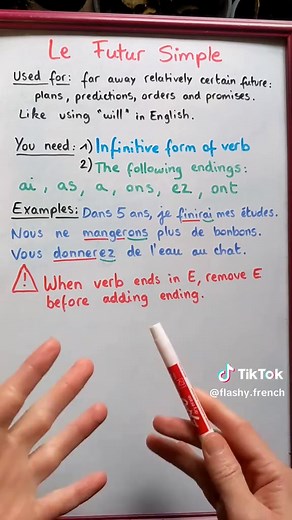 Le Futur Simple
Used for: far away relatively certain future:
plans, predictions, orders and promises.
Like using "will" in English.
You need: 1) Infinitive form of verb
2) The following endings:
ai, as, a, ons, ez, ont
Examples: Dans 5 ans, je finirai mes études.
Nous ne mangerons plus de bonbons.
Vous donnerez de l'eau au chat.
! When verb ends in E, remove E
before adding ending.
TikTok
@flashy.french